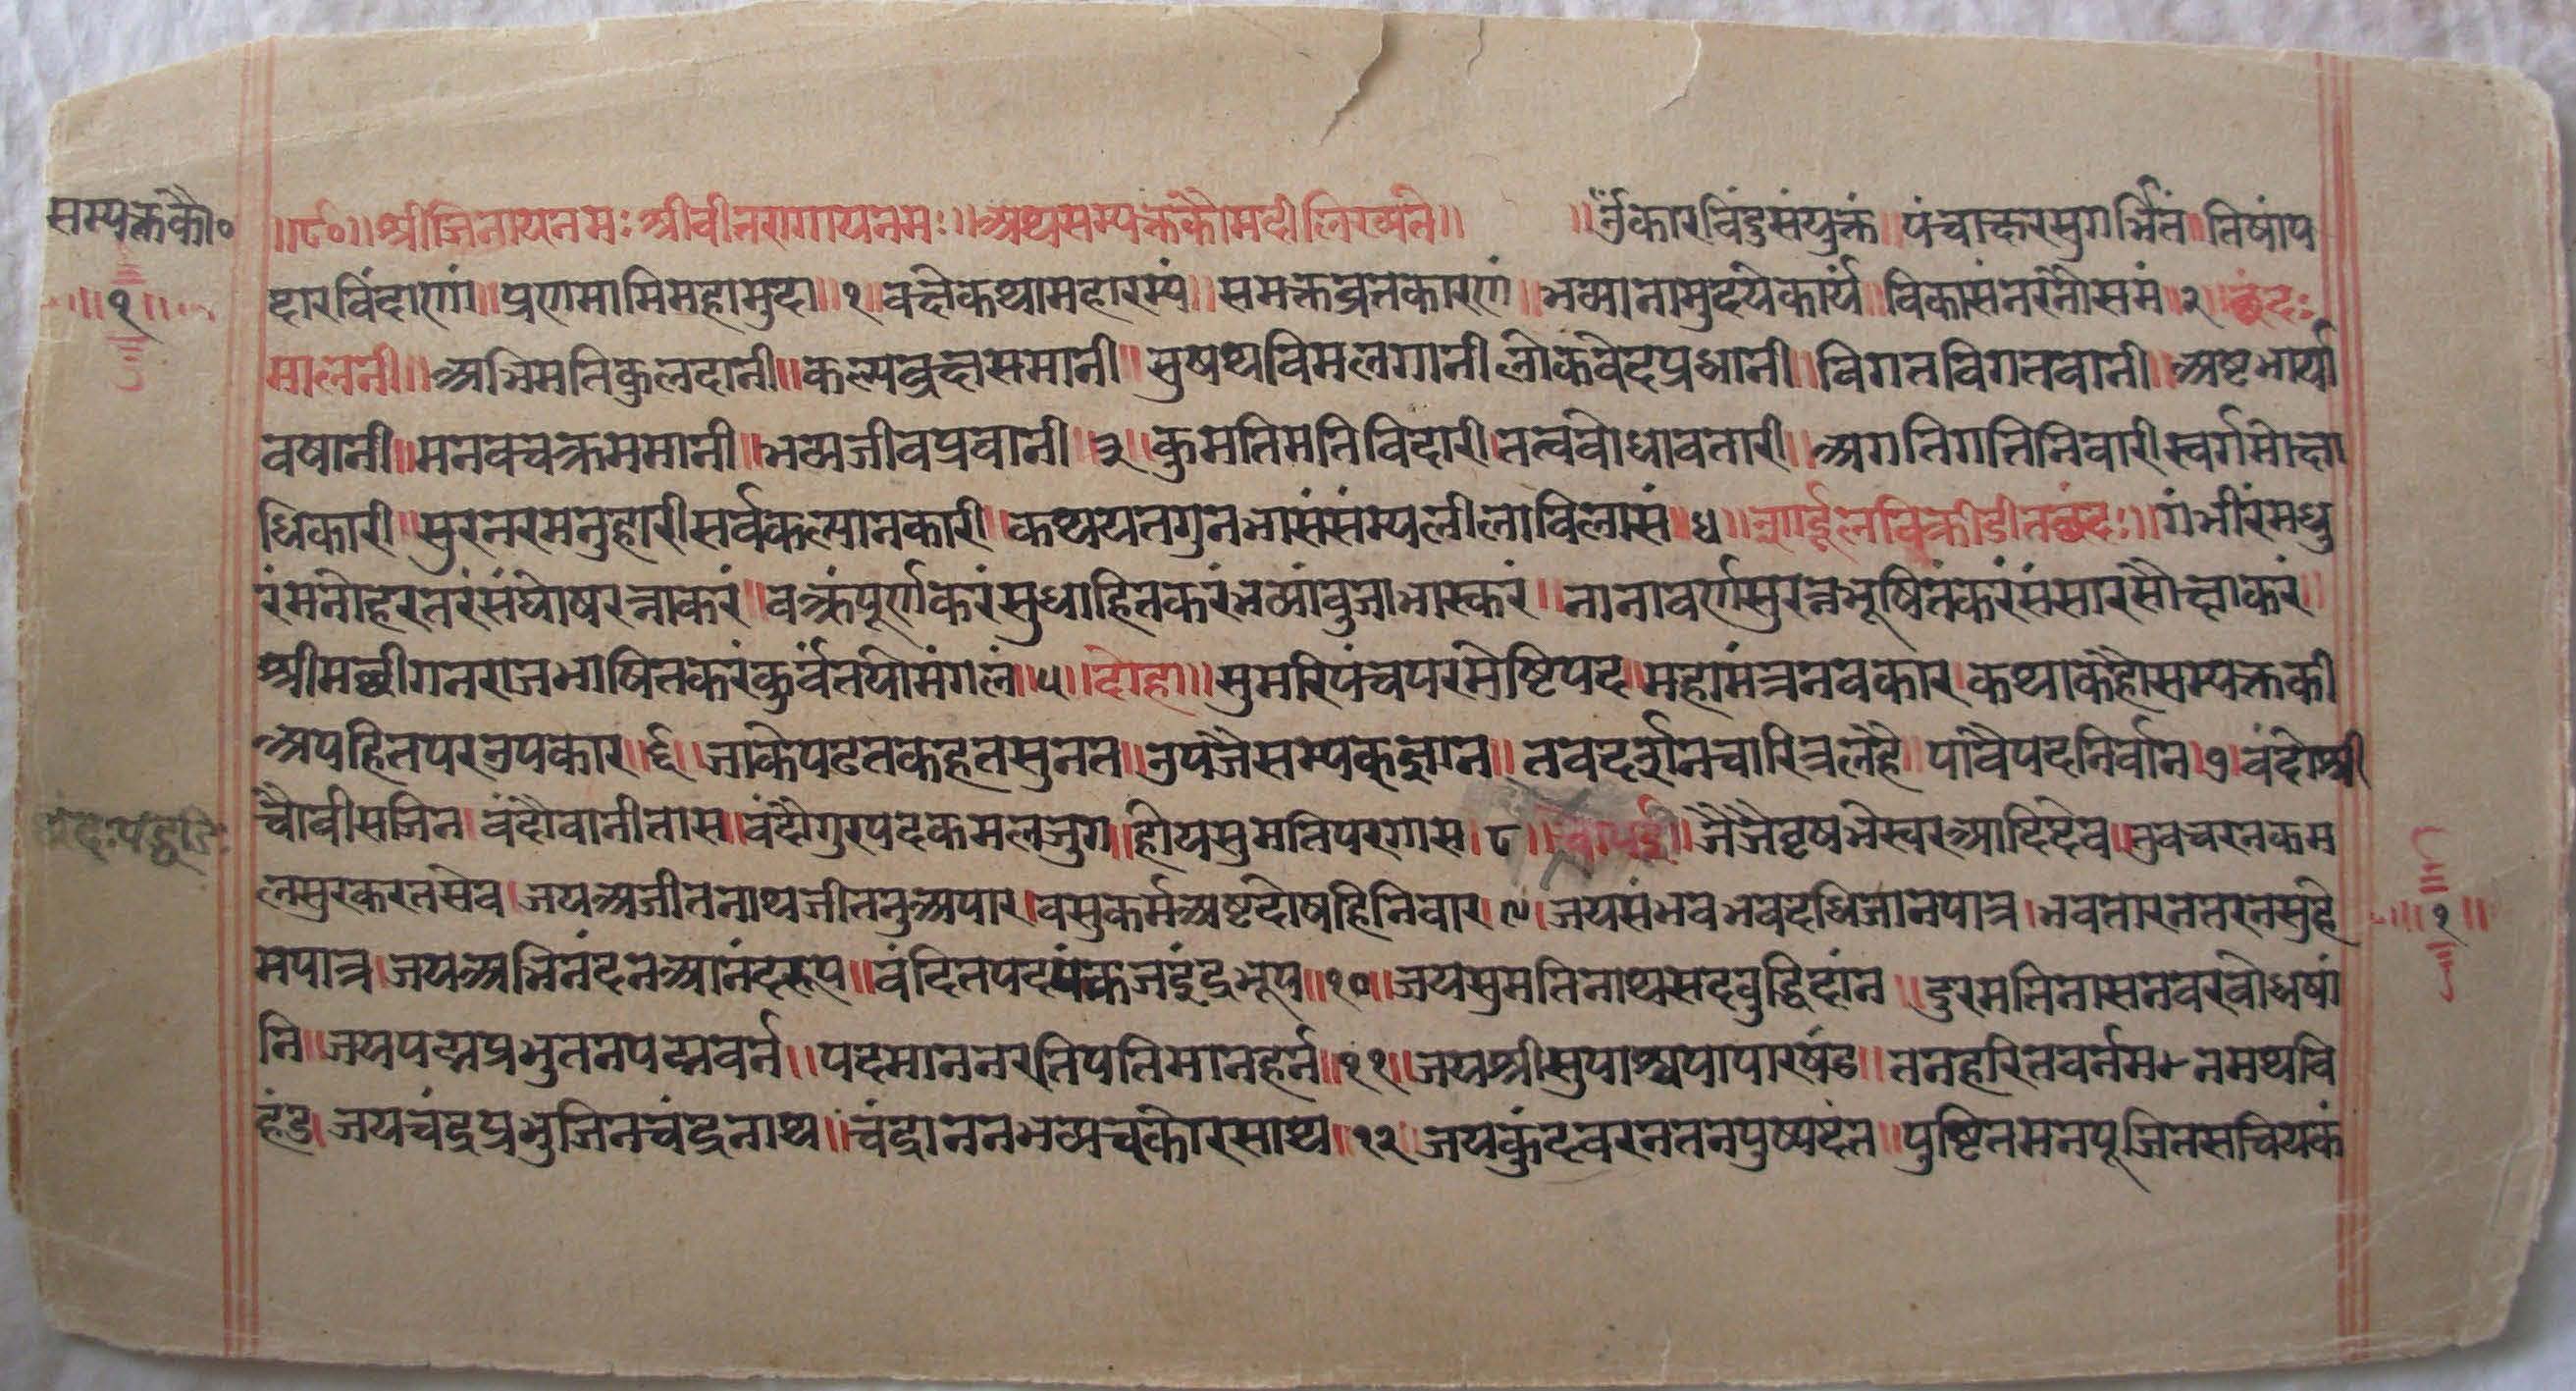 सम्यक्तकौ०
॥८०॥श्रीजिनायनमः श्रीवीतरागायनमः॥अथसम्यक्तकौमदीलिख्यते॥ ॥ॐकारविंदुसंयुक्तं॥पंचाक्षरसुगर्भितं॥तिषांप
१
दारविंदाणां॥प्रणमामिमहामुदा॥१ वक्षेकथामहारम्यं॥समक्तव्रतकारणं॥भव्यानामुदयेकार्यं॥विकासंनरंनौसमं॥२॥छंदः
मालनी॥अभिमतिकुलदानी॥कल्पव्रक्षसमानी॥सुषथविमलगानी लोकवेदप्रधानी॥विगतविगतवानी॥अष्टभार्या
वषानी॥मनवचक्रममानी॥भव्यजीवप्रवानी॥३॥कुमतिमतिविदारी।तत्वबोधावतारी॥अगतिगतिनिवारीस्वर्गमोक्षा
धिकारी॥सुरनरमनुहारीसर्वकल्यानकारी॥कथयतगुनभासंसंम्यलीलाविलासं॥४॥शार्दूलविक्रीडीतछंदः॥गंभीरंमधु
रंमनोहरतरंसंघोषरत्नाकरं॥वक्रंपूर्णकरंसुधाहितकरंभव्यांबुजाभास्करं॥नानावर्णसुरत्नभूषितकरंसंसारसौक्ष्याकरं॥
श्रीमछ्रीगनराजभाषितकरंकुर्वंतयोमंगलं॥५॥दोहा॥सुमरिपंचपरमेष्टिपद।महामंत्रनवकार।कथाकहौसम्यक्तकी
अपहितपरउपकार॥६॥जाकेपढतकहतसुनत॥उपजैसम्यक्ज्ञान॥तवदर्शनचारित्रलहै॥पावैपदनिर्वान॥७ वंदौश्री
चौवीसजिन वंदौवानीतास।वंदौगुरपदकमलजुग।हीयसुमतिपरगास।८॥ ॥जैजैवृषभेस्वरआदिदेव॥तुवचरनकम
लसुरकरतसेव।जयअजीतनाथजीतनुअपार।वसुकर्मअष्टदोषहिनिवार।९।जयसंभवभवदधिजानपात्र।भवतारनतरनसुहे
१
मपात्र।जयअभिनंदनआनंदरूप॥वंदितपदपंकजइंद्रभूप॥१०॥जयसुमतिनाथसदबुद्धिदांन॥दुरमतिनासनवरवोधषां
नि॥जयपद्मप्रभुतनपद्मवर्न॥पदमाननरतिपतिमानहर्न॥११॥जयश्रीसुपाश्र्वपापारषंड॥तनहरितवर्नमनमथवि
हंड॥जयचंद्रप्रभुजिनचंद्रनाथ॥चंद्राननभव्यचकोरसाथ॥१२॥जयकुंदवरनतनपुष्पदंत॥पुष्टितमनपूजितसचियकं